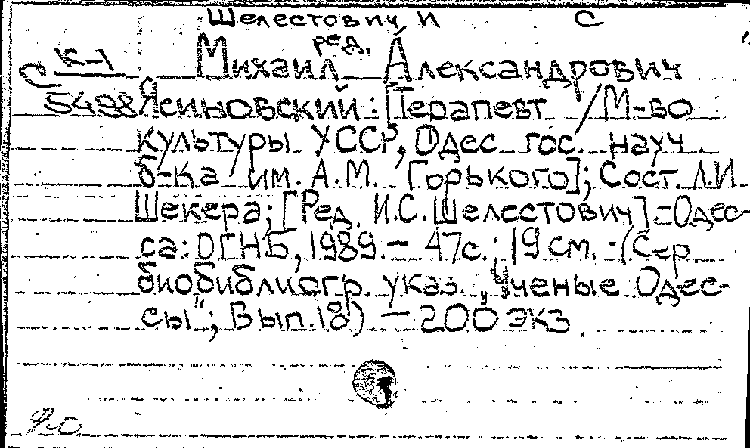 Шелестович И С
ред.
К-1 Михаил Александрович
С 5498 Ясиновский: [Терапевт / М-во
культуры УССР, Одес. гос. науч.
б-ка им. А.М. Горького]; Сост. Л.И.
Шекера; [Ред. И.С. Шелестович]. - Одес-
са: ОГНБ, 1989. - 47с.; 19 см. - (Сер.
биобиблиогр. указ. „Ученые Одес-
сы"; Вып. 18) - 200 экз.